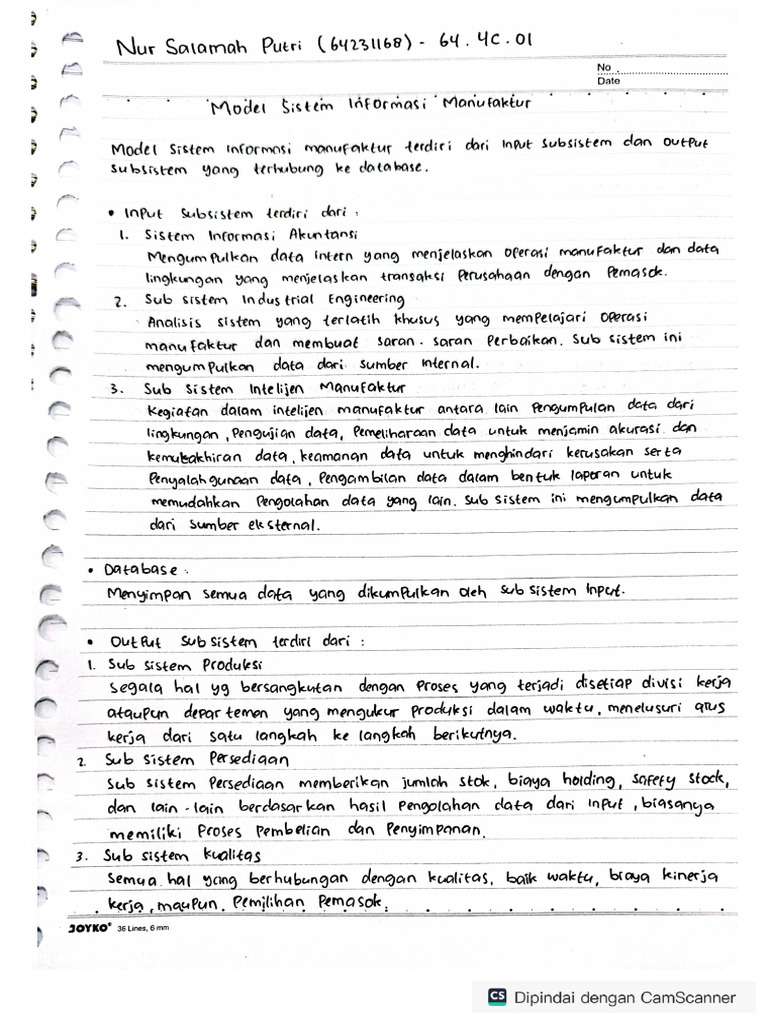 Nur Salamah Putri (64231168) - 64.4C.01
No
Date
Model Sistem Informasi Manufaktur
Model Sistem Informasi manufaktur terdiri dari Input Subsistem dan output
subsistem yang terhubung ke database.
• Input Subsistem terdiri dari :
1. Sistem Informasi Akuntansi
Mengumpulkan data intern yang menjelaskan operasi manufaktur dan data
lingkungan yang menjelaskan transaksi Perusahaan dengan Pemasok.
2. Sub sistem Industrial Engineering
Analisis sistem yang terlatih khusus yang mempelajari operasi
manufaktur dan membuat saran-saran Perbaikan. Sub sistem ini
mengumpulkan data dari sumber internal.
3. Sub Sistem Intelijen Manufaktur
Kegiatan dalam intelijen manufaktur antara lain Pengumpulan data dari
lingkungan, Pengujian data, Pemeliharaan data untuk menjamin akurasi dan
kemutakhiran data, keamanan data untuk menghindari kerusakan serta
Penyalahgunaan data, Pengambilan data dalam bentuk laporan untuk
memudahkan Pengolahan data yang lain. Sub sistem ini mengumpulkan data
dari sumber eksternal.
• Database :
Menyimpan semua data yang dikumpulkan oleh sub sistem Input.
• Output Subsistem terdiri dari :
1. Sub sistem Produksi
Segala hal yg bersangkutan dengan Proses yang terjadi disetiap divisi kerja
ataupun departemen yang mengukur Produksi dalam waktu, menelusuri arus
kerja dari satu langkah ke langkah berikutnya.
2. Sub Sistem Persediaan
Sub sistem Persediaan memberikan jumlah stok, biaya holding, safety stock,
dan lain-lain berdasarkan hasil Pengolahan data dari input, biasanya
memiliki Proses Pembelian dan Penyimpanan.
3. Sub sistem kualitas
Semua hal yang berhubungan dengan kualitas, baik waktu, biaya kinerja
kerja, maupun Pemilihan Pemasok.
JOYKO® 36 Lines, 6 mm
CS Dipindai dengan CamScanner